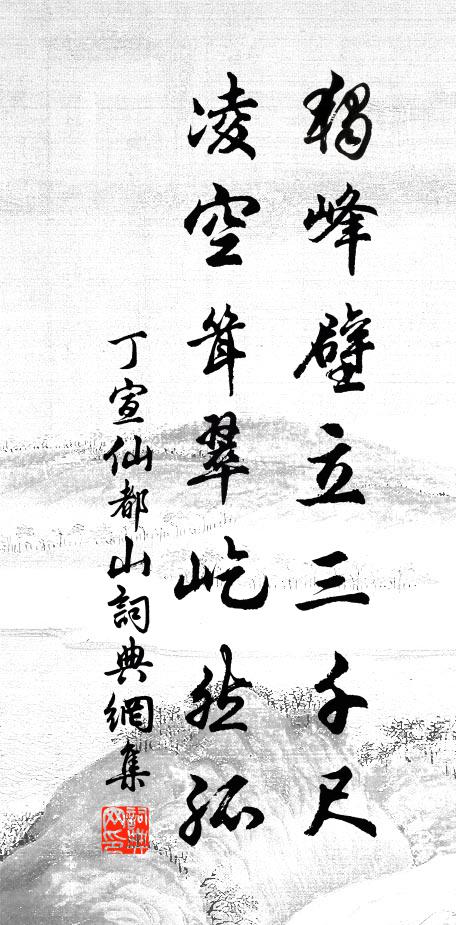 獨峰壁立三千尺
凌空耸翠屹然孤
丁宣仙都山詞典網集